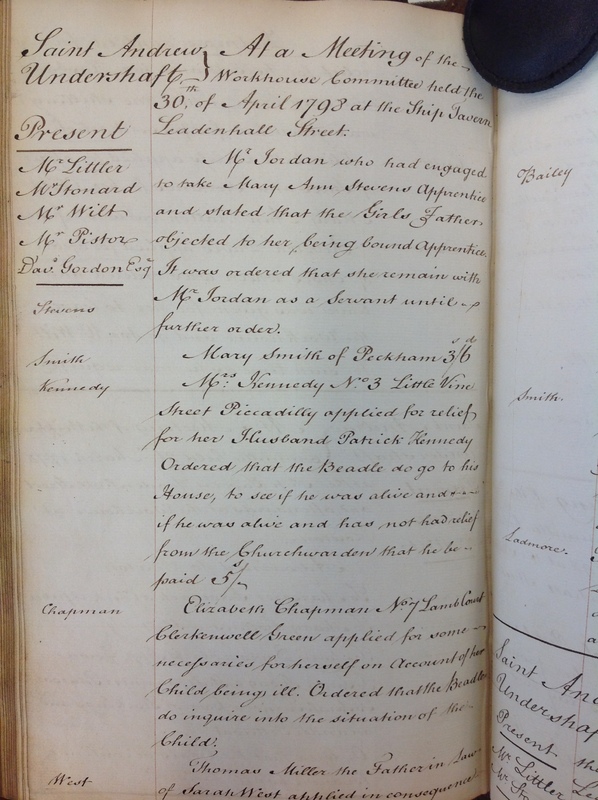 Saint Andrew } At a Meeting of the
Undershaft } Workhouse Committee held the
30th of April 1793 at the Ship Tavern
Present Leadenhall Street.
Mr Littler Mr Jordan who had engaged
Mr Stonard to take Mary Ann Stevens Apprentice
Mr Wilt and stated that the Girls Father
Mr Pistor objected to her being bound Apprentice.
Davd. Gordon Esqr It was ordered that she remain with
Stevens Mr Jordan as a Servant until
further order.
Smith Mary Smith of Peckham 3s/6d
Kennedy Mrs Kennedy No 3 Little Vine
Street Piccadilly applied for relief
for her Husband Patrick Kennedy
Ordered that the Beadle do go to his
House, to see if he was alive and
if he was alive and has not had relief
from the Churchwarden that he be
paid 5s/-
Chapman Elizabeth Chapman No 7 Lamb Court
Clerkenwell Green applied for some
necessaries for herself on Account of her
Child being ill. Ordered that the Beadle
do inquire into the situation of the
Child.
West Thomas Miller the Father in Law
of Sarah West applied in consequence
Bailey
Smith.
Ladmore.
Saint An
Undershaf
Present
Mr Littler
Mr St